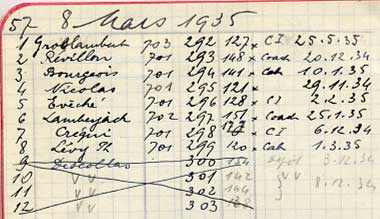 57 8 Mars 1935
1 Groslambert 703 292 127 x CI 25.5.35
2 Révillon 701 293 148 x Coach 20.12.34
3 Bourgeois 701 294 141 x Cab 10.1.35
4 Nicolas 701 295 121 x 29.11.34
5 Eviché 701 296 128 x CI 2.2.35
6 Lamberjack 702 297 151 x Coach 25.1.35
7 Oreguï 701 298 CI 6.12.34
8 Lévy 701 299 120 x Cab 1.3.35
9 Descollas 300 134 3.12.34
10 v v 301 142
11 v v 302 144 8.12.34
12 303